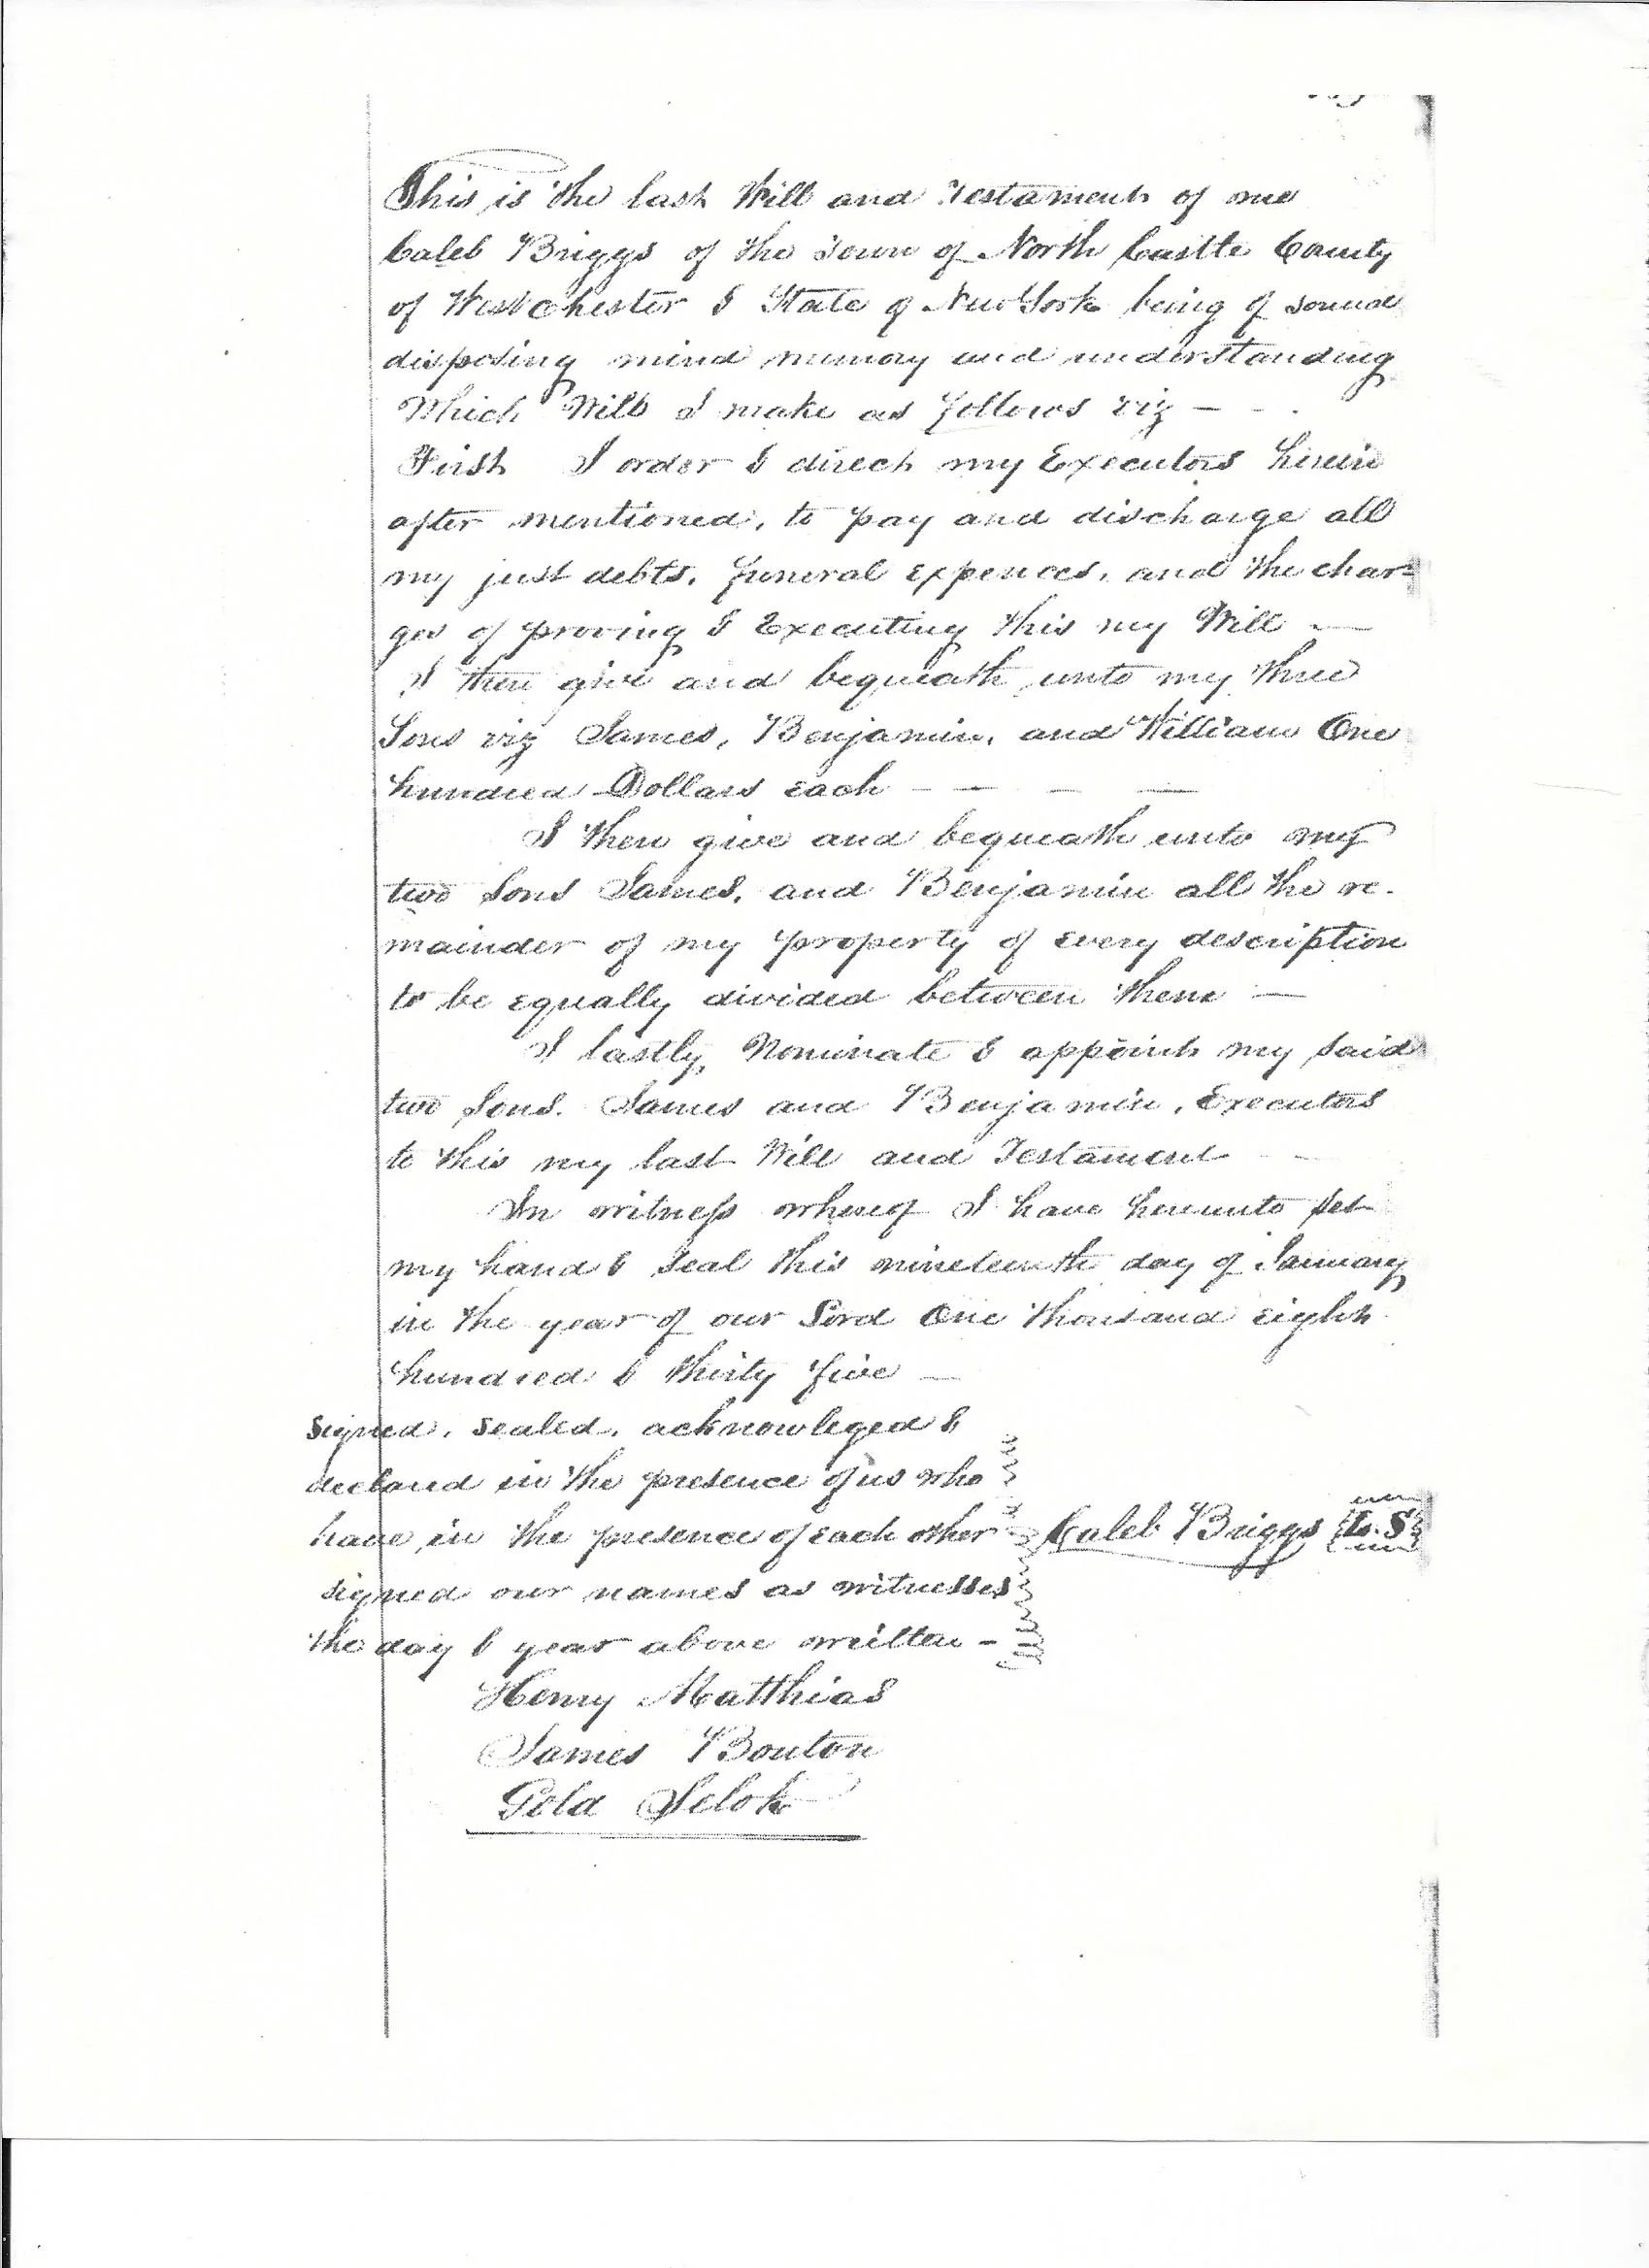 This is the last Will and Testament of me
Caleb Briggs of the Town of North Castle County
of Westchester & State of New York being of sound
disposing mind memory and understanding
Which Will I make as follows viz — - -
First I order & direct my Executors herein
after mentioned, to pay and discharge all
my just debts, funeral expences, and the char=
ges of proving & Executing this my Will —
I then give and bequeath unto my three
Sons viz James, Benjamin, and William One
hundred Dollars each — — — —
I then give and bequeath unto my
two Sons James, and Benjamin all the re-
mainder of my property of every description
to be equally divided between them —
I lastly, Nominate & appoint my said
two Sons. James and Benjamin, Executors
to this my last Will and Testament - -
In witness whereof I have hereunto set
my hand & seal this nineteenth day of January
in the year of our Lord One thousand eight
hundred & thirty five —
Signed, sealed, acknowleged &
declared in the presence of us who
have, in the presence of each other Caleb Briggs L.S
signed our names as witnesses
the day & year above written -
Henry Matthias
James Bouton
Gold